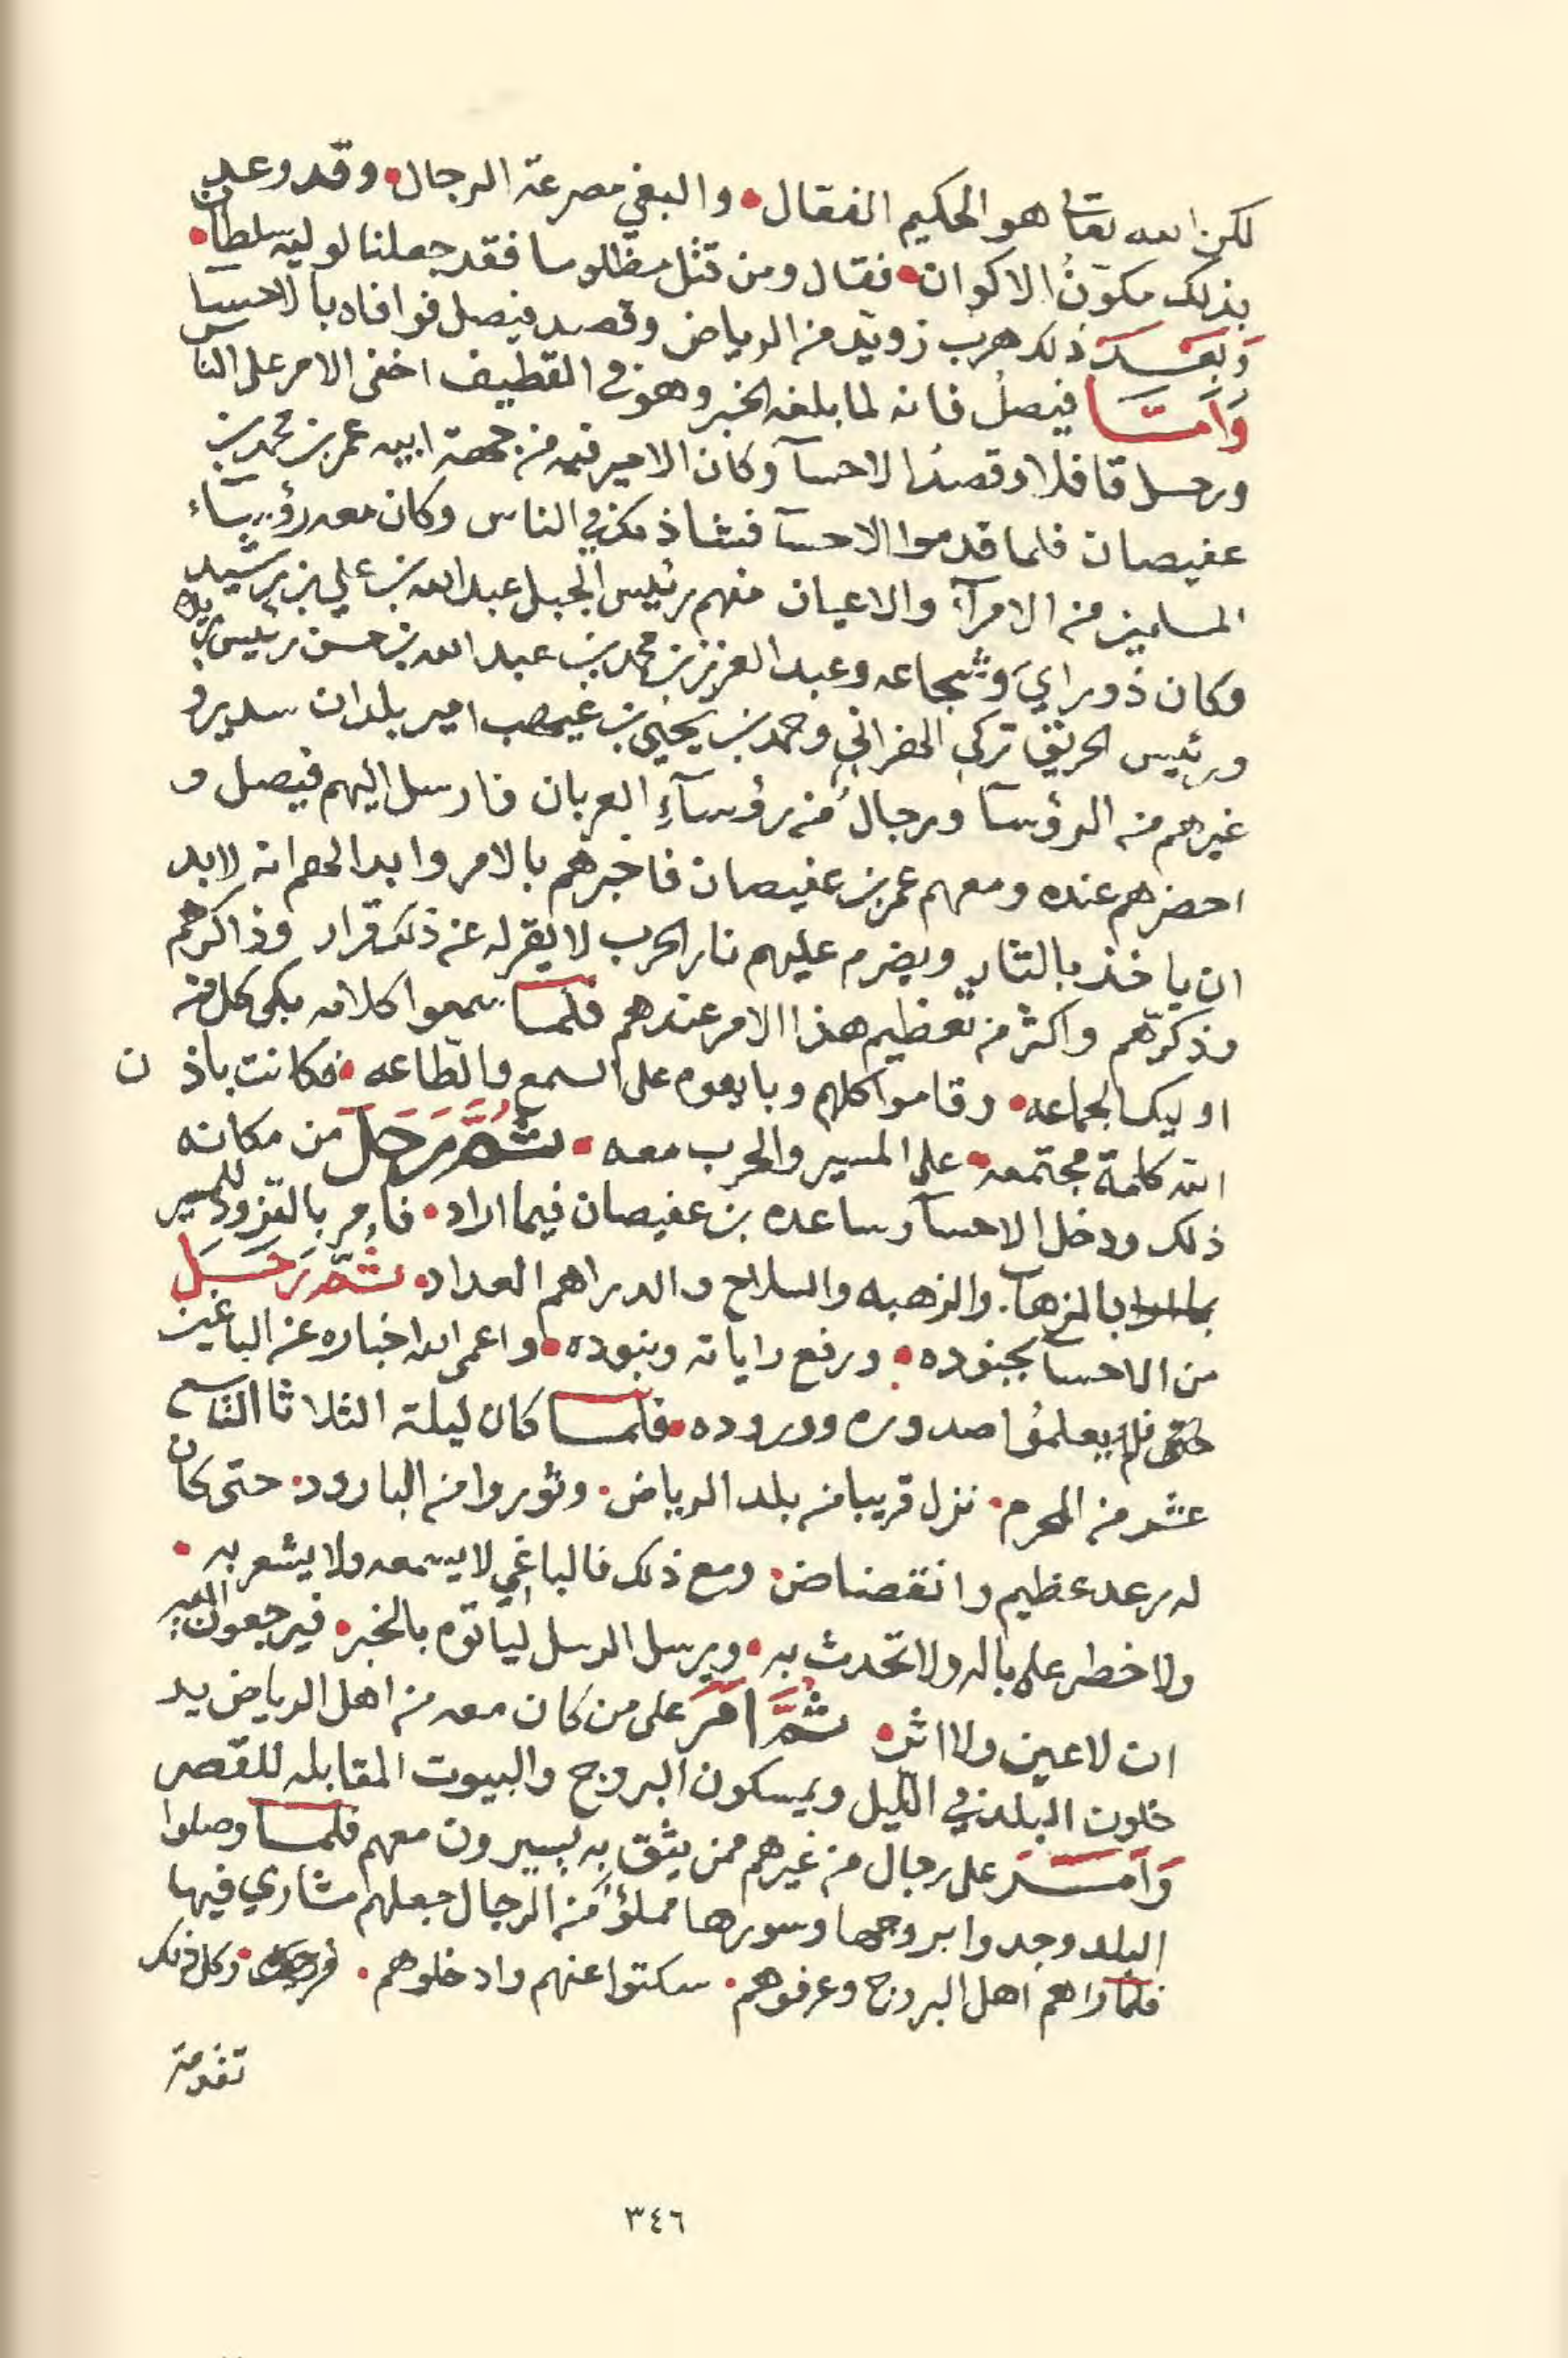 لكن الله تعالى هو الحكيم الفعال • والبغي مصرعة الرجال • وقد وعد
بذلك مكوّنُ الاكوان • فقال ومن قتل مظلوما فقد جعلنا لوليه سلطان •
وَبَعْدَ ذلك هرب زويد من الرياض وقصد فيصل فوافاه بالاحسا
وَاَمَّا فيصلُ فانه لما بلغه الخبر وهو في القطيف اخفى الامر على الناس
ورحل قافلا وقصد الاحسآ وكان الامير فيه من جهة ابيه عمر بن محمد بن
عفيصان فلما قدموا الاحسآ فشا ذكر في الناس وكان معه رؤسآء
المسلمين من الامرآء والاعيان منهم رئيس الجبل عبد الله بن علي بن رشيد
وكان ذو راي وشجاعه وعبد العزيز بن محمد بن عبد الله بن حسن رئيس بريده
ورئيس الحريق تركي الهزاني وحمد بن يحيى بن غيهب امير بلدان سدير و
غيرهم من الرؤسآ ورجالُ من رؤسآءِ العربان فارسل اليهم فيصل و
احضرهم عنده ومعهم عمر بن عفيصان فاخبرهم بالامر وابدا لهم انه لابد
ان ياخذ بالثار ويضرم عليهم نار الحرب لا يقر له عن ذلك قرار وذاكرهم
وذكّرهم واكثر من تعظيم هذا الامر عندهم فلمّا سمعوا كلامه بكى كل من
اوليك الجماعه • وقاموا كلهم وبايعوه على السمع والطاعه • فكانت باذن
الله كلمة مجتمعه • على المسير والحرب معه • ثُمَّ رَحَلَ من مكانه
ذلك ودخل الاحسآ وساعده بن عفيصان فيما اراد • فأمر بالتزود للمسير
بالزهاب • والزهبه والسلاح والدراهم العداد • ثُمَّ رَحَلَ
من الاحسآ بجنوده • ورفع راياته وبنوده • واعمى الله اخباره عن الباغين
حتى فلم يعلموُا صدوره ووروده • فلمّا كان ليلة الثلاثا التاسع
عشر من المحرم • نزل قريبا من بلد الرياض • وثوروا من البارود • حتى كان
له رعد عظيم وانقضاض • ومع ذلك فالباغي لا يسمعه ولا يشعر به •
ولا خطر على باله ولا تحدث به • ويرسل الرسل لياتوه بالخبر • فيرجعون اليه
ان لا عين ولا اثر • ثُمَّ اَمَرَ على من كان معه من اهل الرياض يد
خلون البلد في الليل ويمسكون البروج والبيوت المقابله للقصر
وَاَمَرَ على رجال من غيرهم ممن يثق به يسيرون معهم فلمّا وصلوا
البلد وجدوا بروجها وسورها مملؤا من الرجال جعلهم مشاري فيها
فلمّا راهم اهل البروج وعرفوهم • سكتوا عنهم وادخلوهم • • وكل ذلك
تقدمة
٣٤٦